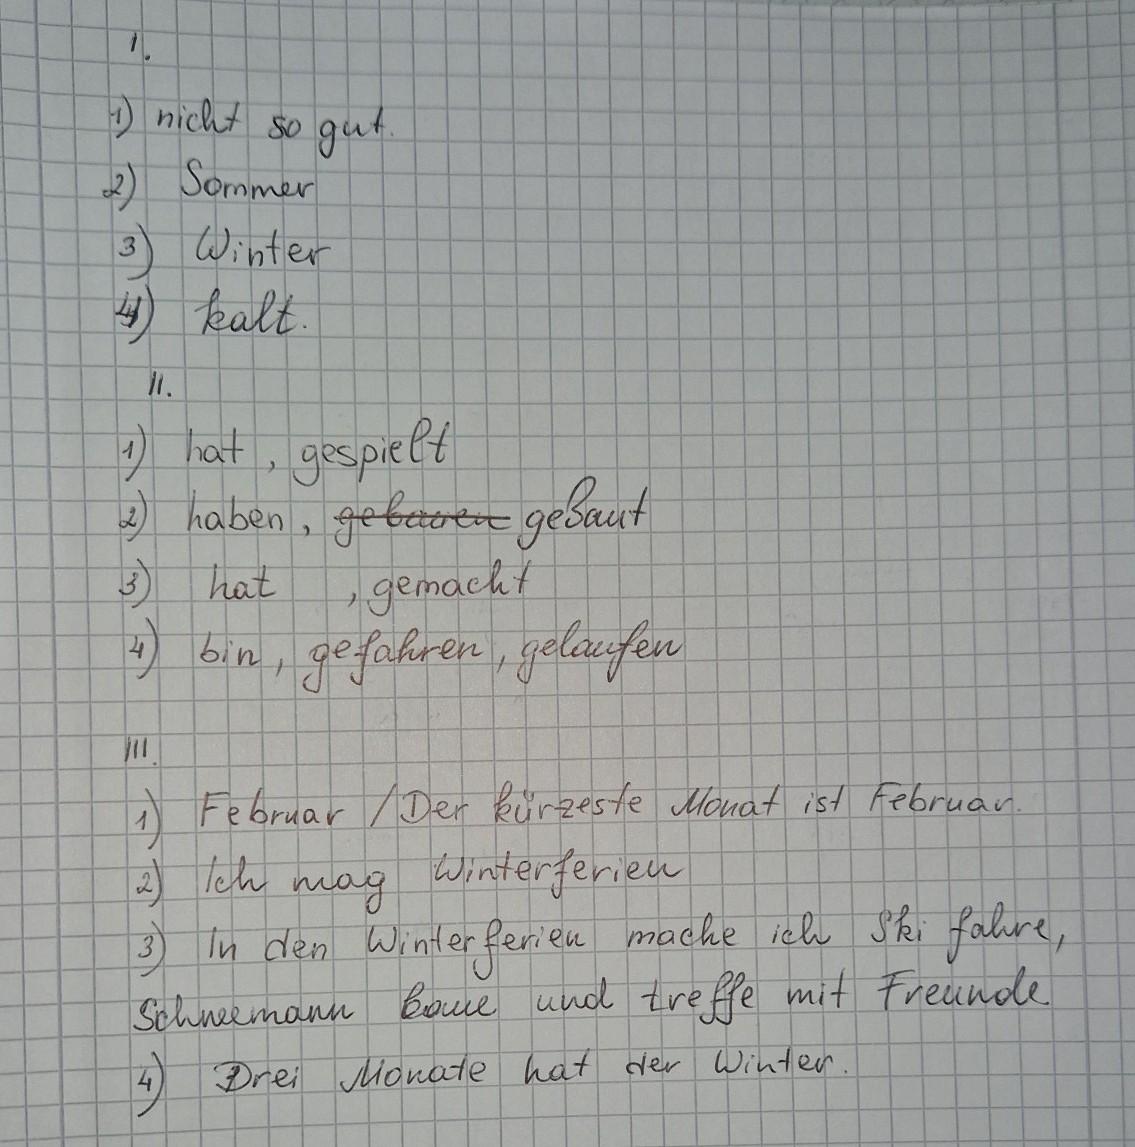 I.
1) nicht so gut.
2) Sommer
3) Winter
4) kalt.
II.
1) hat, gespielt
2) haben, gebauen gebaut
3) hat , gemacht
4) bin, gefahren, gelaufen
III.
1) Februar / Der kürzeste Monat ist Februar.
2) Ich mag Winterferien
3) In den Winterferien mache ich Ski fahre,
Schneemann baue und treffe mit Freunde
4) Drei Monate hat der Winter.